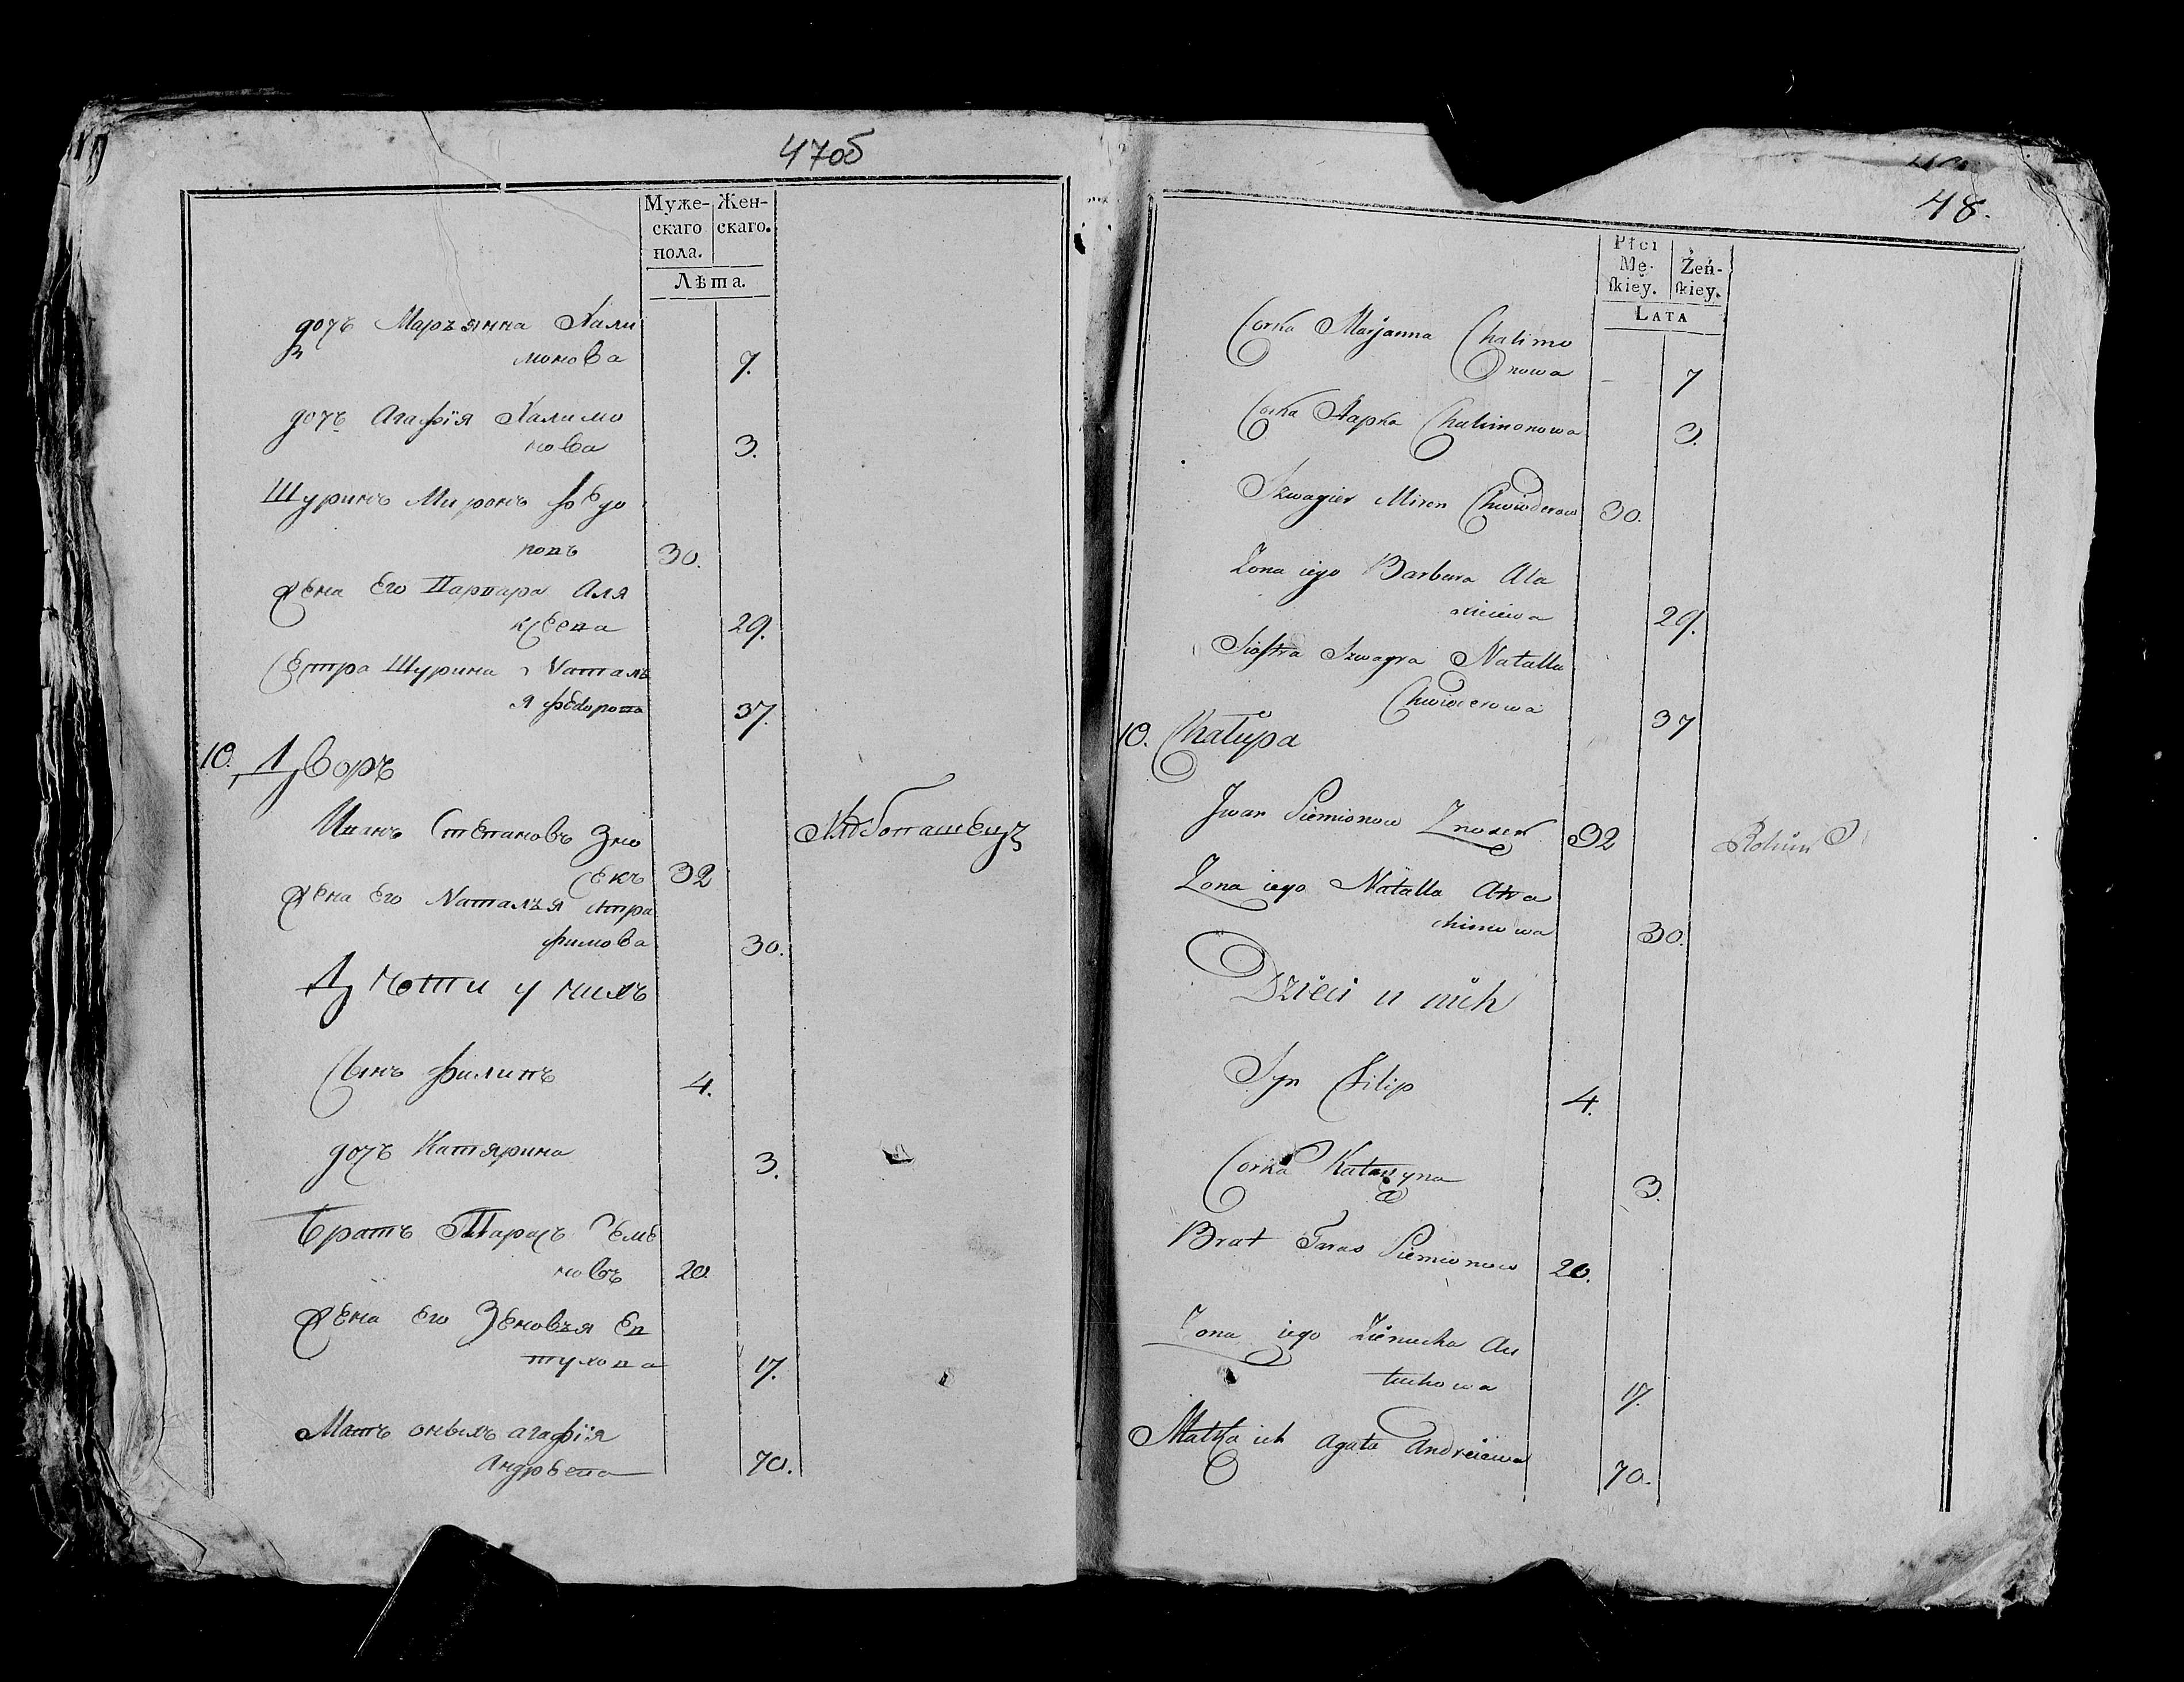 47об
Муже-
скаго
пола.
Жен-
скаго.
Лѣта.
дочь Маръянна Хали
монова 7.
дочь Агафїя Халимо
нова 3.
Шуринъ Миронъ Федо
ровъ 30.
Жена Его Варвара Аля
ксеева 29.
Сестра Шурина Наталь
я Федорова 37.
10. Дворъ
Иванъ Степановъ Зно
секъ 32
Жена Его Наталья
фимова 30.
Дѣти у нихъ
Сынъ Филипъ 4.
дочь Катярина 3.
Братъ Тарасъ Семе
новъ 20
Жена Его Зеновья Ев
тухова 17.
Мать оныхъ агафїя
Андрѣева 70.
48.
Płci
Mę-
skiey.
Żeń-
skiey.
LATA
Corka Marjanna Chalimo
nowa 7
Corka Hapka Chalimonowa 3.
Szwagier Miron Chwiederow 30.
Zona iego Barbara Ala
xieiewa 29.
Siostra Szwagra Natalla
Chwiederowa 37
10. Chałupa
Jwan Siemionow Znosek 32
Zona iego Natalla
chimowa 30.
Dzieci u nich
Syn Filip 4.
Corka Katarzyna 3.
Brat Taras Siemionow 20.
Zona iego Zienucha Au
tuchowa 17.
Matka ich Agata Andreiewa 70.